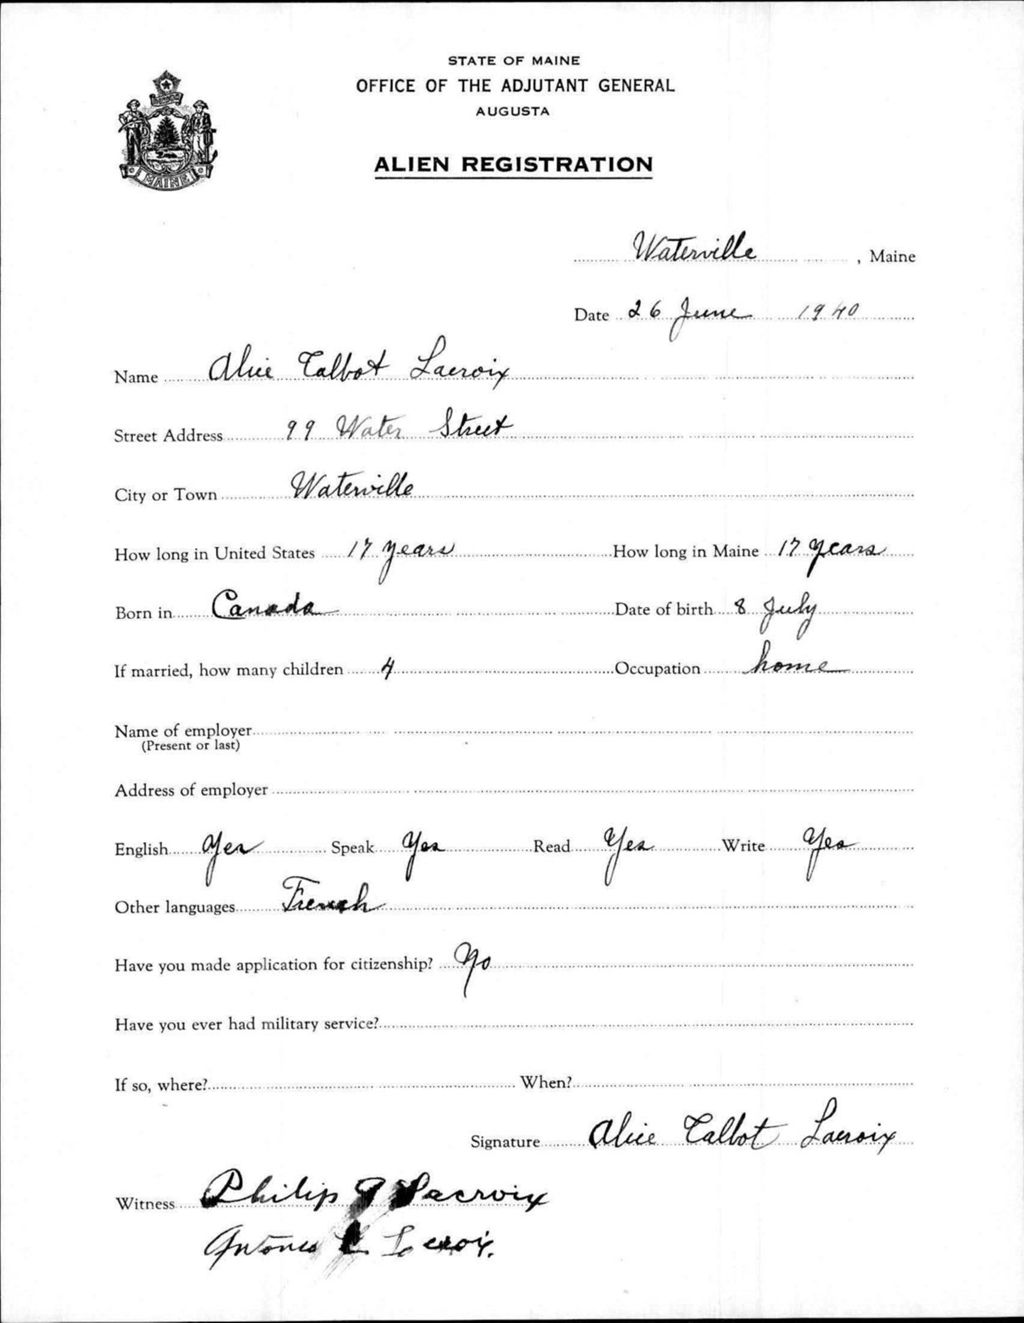 STATE OF MAINE
OFFICE OF THE ADJUTANT GENERAL
AUGUSTA
ALIEN REGISTRATION
MAINE
Waterville, Maine
Date 26 June 1940
Name Alice Talbot Lacroix
Street Address 99 Water Street
City or Town Waterville
How long in United States 17 years How long in Maine 17 years
Born in Canada Date of birth 8 July
If married, how many children 4 Occupation home
Name of employer
(Present or last)
Address of employer
English Yes Speak Yes Read Yes Write Yes
Other languages French
Have you made application for citizenship? No
Have you ever had military service?
If so, where? When?
Signature Alice Talbot Lacroix
Witness Philip Lacroix